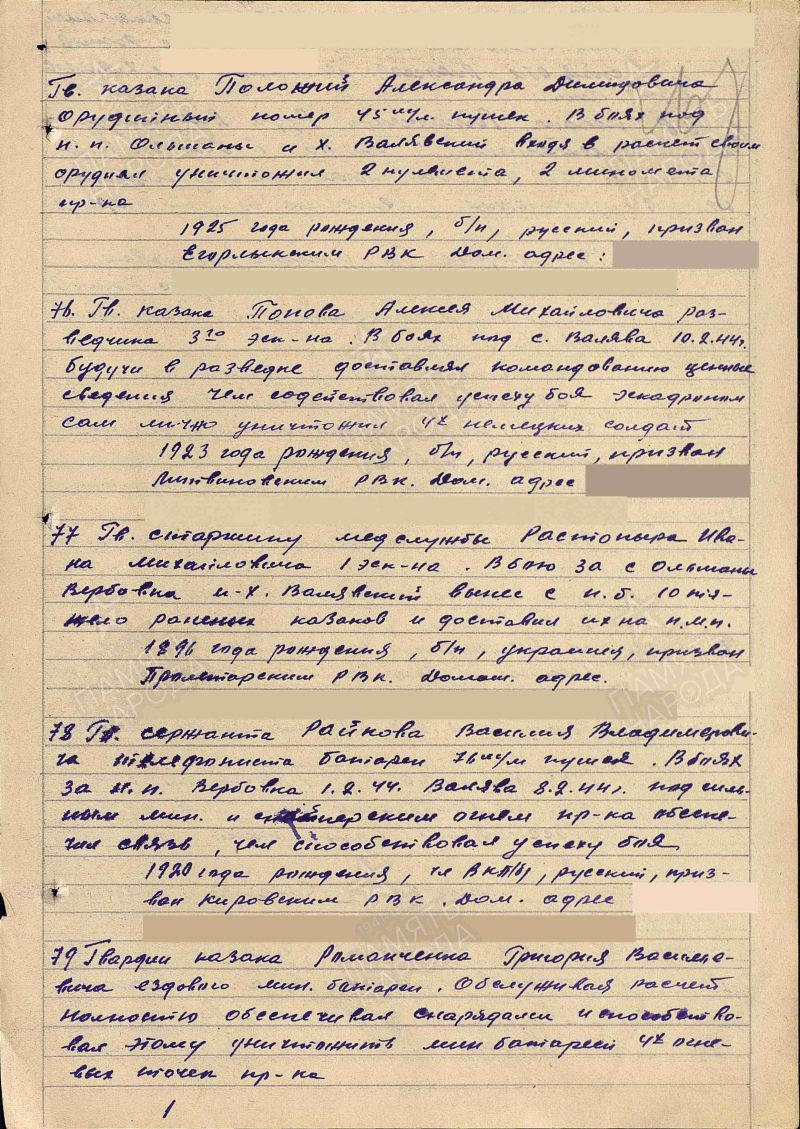 Гв. казака Положий Александра Демидовича
орудийный номер 45 м/м. пушек. В боях под
н. п. Ольшаны и х. Валявский входя в расчет своим
орудием уничтожил 2 пулемета, 2 миномета
пр-ка
1925 года рождения, б/п, русский, призван
Егорлыкским РВК Дом. адрес:
76. Гв. казака Попова Алексея Михайловича раз-
ведчика 3го эск-на. В боях под с. Валява 10.2.44г.
будучи в разведке доставлял командованию ценные
сведения чем содействовал успеху боя эскадроном
сам лично уничтожил 4х немецких солдат
1923 года рождения, б/п, русский, призван
Литвиновским РВК. Дом. адрес
77 Гв. старшину медслужбы Растопыра Ива-
на Михайловича 1 эск-на. В бою за с Ольшаны
Вербовка и-х. Валявский вынес с п.б. 10 тя-
жело раненых казаков и доставил их на п.м.п.
1896 года рождения, б/п, украинец, призван
Пролетарским РВК. Домаш. адрес.
78 Гв. сержанта Райкова Василия Владимирови-
ча телефониста батареи 76 м/м пушек. В боях
за н. п. Вербовка 1.2.44. Валява 8.2.44г. под силь-
ным мин. и снайперским огнем пр-ка обеспе-
чил связь, чем способствовал успеху боя
1920 года рождения, чл ВКП/б/, русский, приз-
ван Кировским РВК. Дом. адрес
79 Гвардии казака Романченко Григория Василье-
вича ездового мин. батареи. Обслуживая расчет
полностью обеспечивал снарядами и способство-
вал этому уничтожить мин батареей 4х огне-
вых точек пр-ка
1
ПАМЯТЬ
НАРОДА